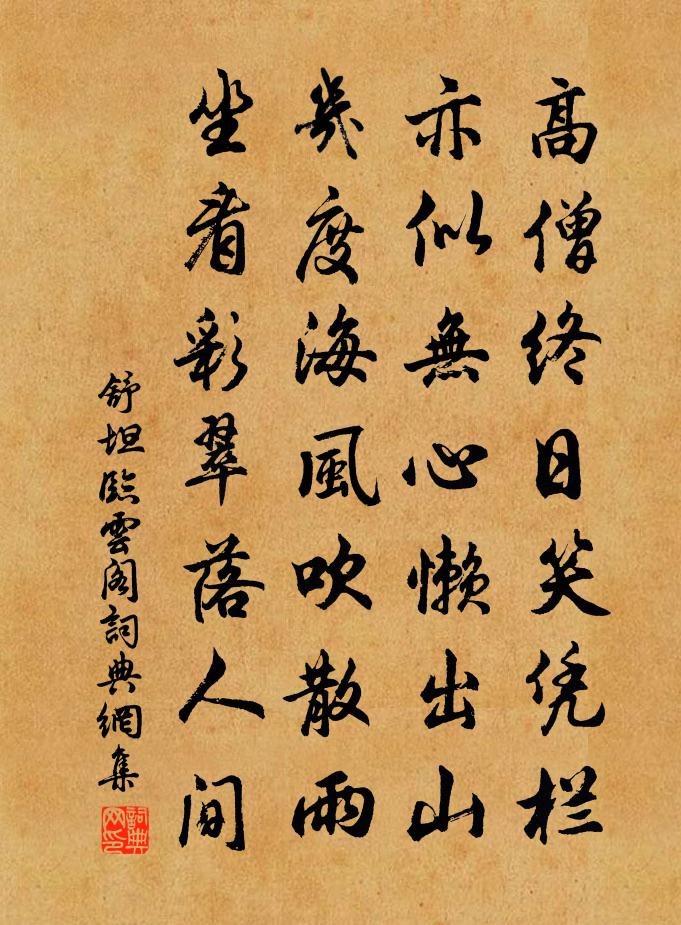 高僧终日笑凭栏
亦似無心懒出山
幾度海風吹散雨
坐看彩翠落人间
舒坦臨雲阁詞典網集
詞典网印